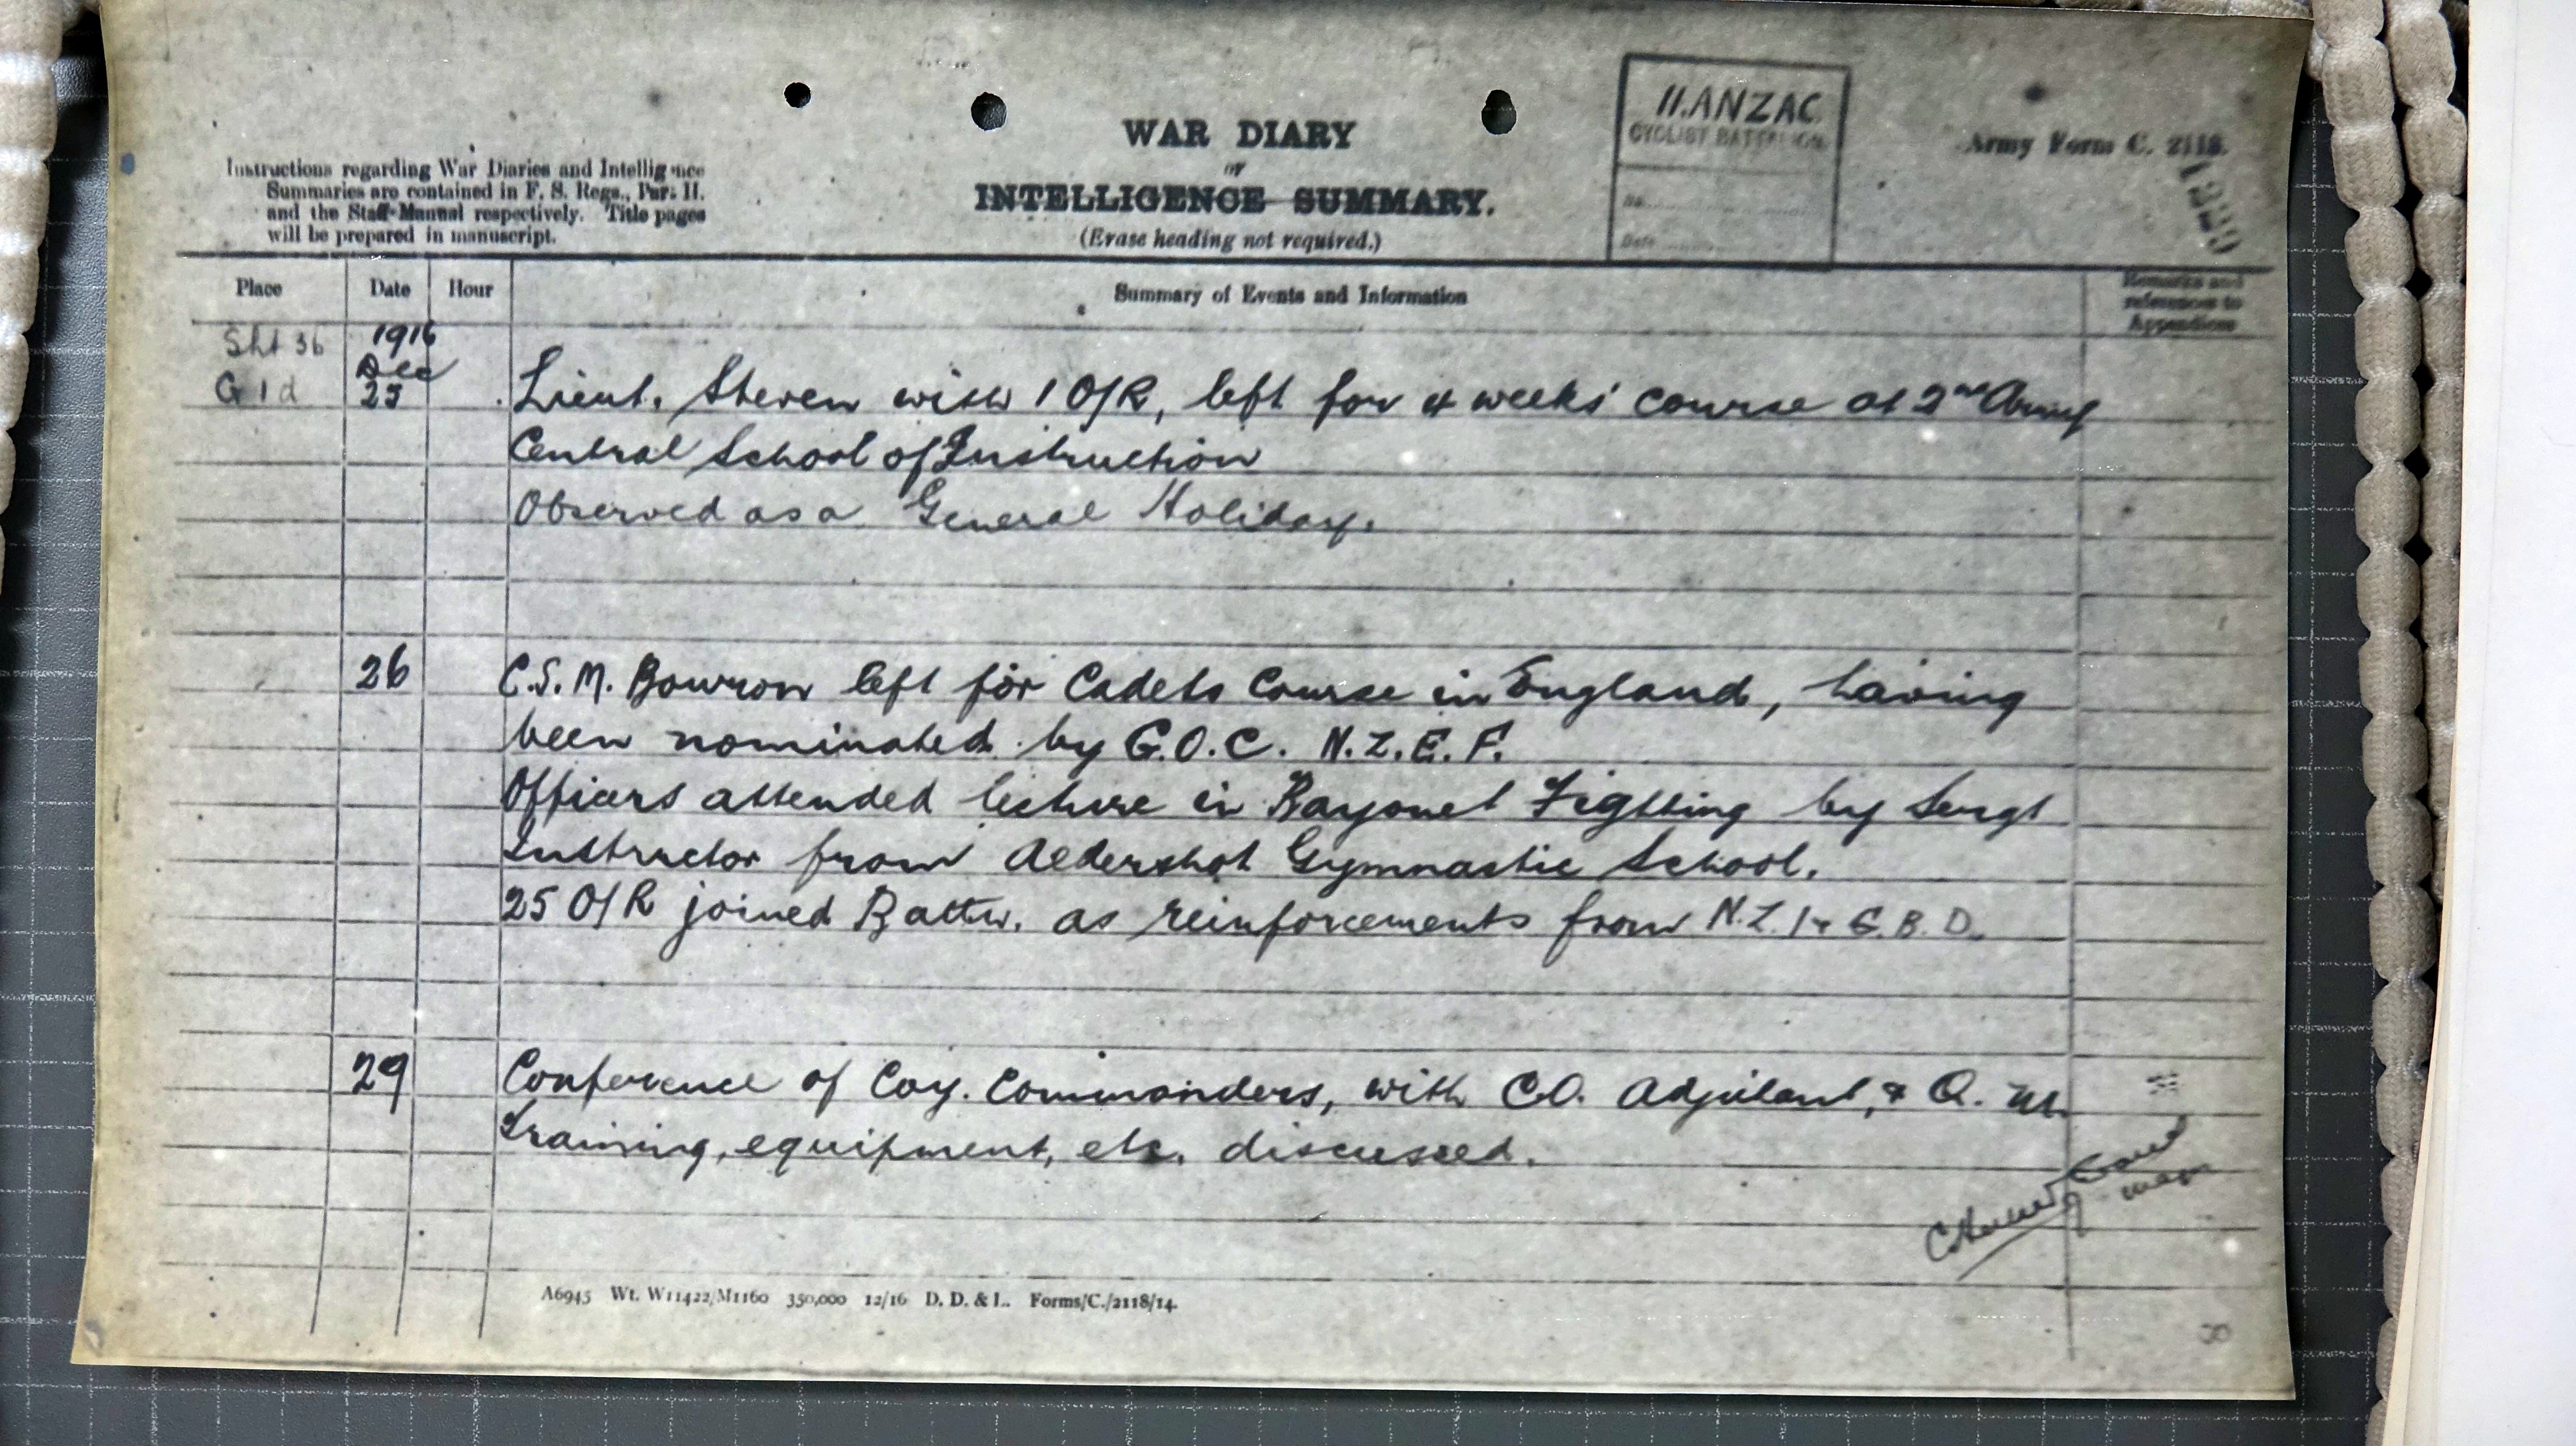 WAR DIARY
or
INTELLIGENCE SUMMARY.
(Erase heading not required.)
Instructions regarding War Diaries and Intelligence
Summaries are contained in F. S. Regs., Part II.
and the Staff Manual respectively. Title pages
will be prepared in manuscript.
II. ANZAC
CYCLIST BATTALION
No.
Date
Army Form C. 2118.
Place
Date
Hour
Summary of Events and Information
Remarks and
references to
Appendices
Sht 36
G 1 d
1916
Dec
25
Lieut. Steven with 1 O/R, left for 4 weeks' course at 2nd Army
Central School of Instruction
Observed as a General Holiday.
26
C.S.M. Bowron left for Cadets Course in England, having
been nominated by G.O.C. N.Z.E.F.
Officers attended lecture in Bayonet Fighting by Sergt
Instructor from Aldershot Gymnastic School.
25 O/R joined Battn. as reinforcements from N.Z. I & G.B.D.
29
Conference of Coy. Commanders, with C.O. Adjutant, & Q. M.
Training, equipment, etc. discussed.
A6945 Wt. W11422/M1160 350,000 12/16 D. D. & L. Forms/C./2118/14.